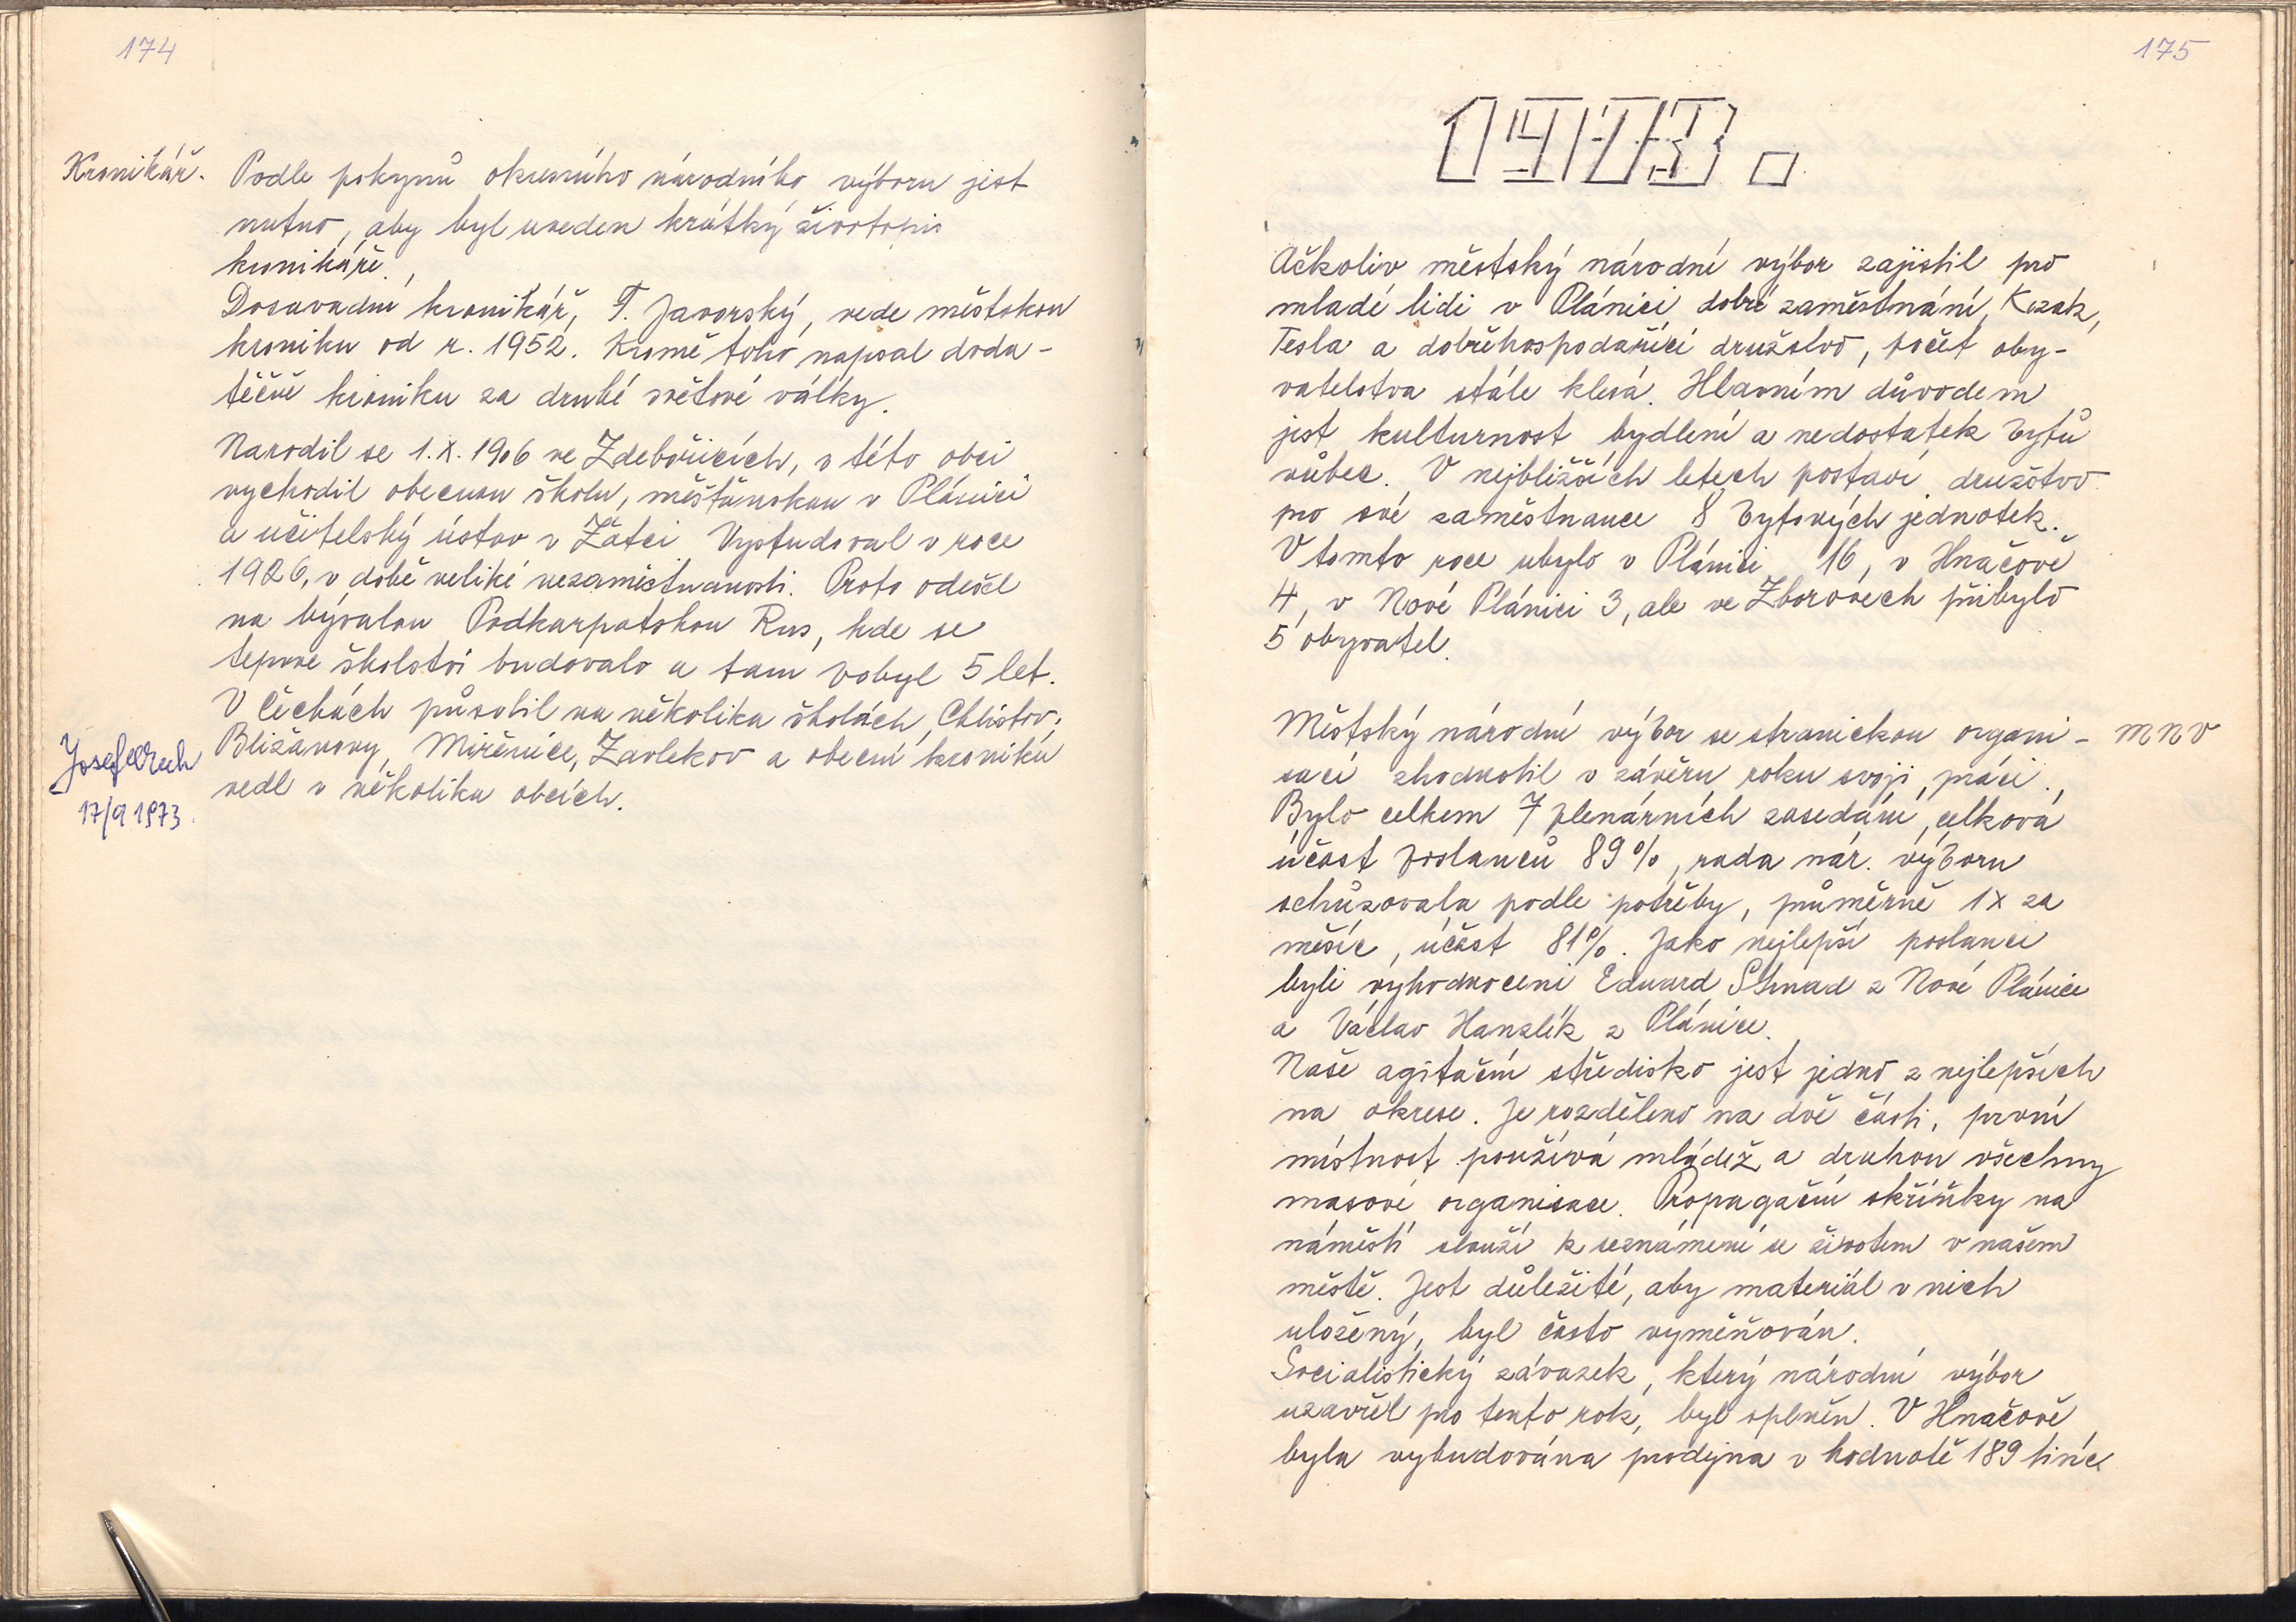 174
Kronikář. Podle pokynů okresního národního výboru jest
nutno, aby byl uveden krátký životopis
kronikáře.
Dosavadní kronikář, F. Javorský, vede městskou
kroniku od r. 1952. Kromě toho napsal doda-
tečně kroniku za druhé světové války.
Narodil se 1. X. 1906 ve Zdebořicích, v této obci
vychodil obecnou školu, měšťanskou v Plánici
a učitelský ústav v Žatci. Vystudoval v roce
1926, v době veliké nezaměstnanosti. Proto odešel
na bývalou Podkarpatskou Rus, kde se
teprve školství budovalo a tam pobyl 5 let.
V Čechách působil na několika školách, Chlistov,
Bližanovy, Miřenice, Zavlekov a obecní kroniku
vedl v několika obcích.
Josef
17/9 1973.
175
1973.
Ačkoliv městský národní výbor zajistil pro
mladé lidi v Plánici dobré zaměstnání, Kozak,
Tesla a dobřehospodařící družstvo, počet oby-
vatelstva stále klesá. Hlavním důvodem
jest kulturnost bydlení a nedostatek bytů
vůbec. V nejbližších letech postaví družstvo
pro své zaměstnance 8 bytových jednotek.
V tomto roce ubylo v Plánici 16, v Hnačově
4, v Nové Plánici 3, ale ve Zborovech přibylo
5 obyvatel.
Městský národní výbor se stranickou organi- MNV
sací zhodnotil v závěru roku svoji práci.
Bylo celkem 7 plenárních zasedání, celková
účast poslanců 89%, rada nár. výboru
schůzovala podle potřeby, průměrně 1x za
měsíc, účast 81%. Jako nejlepší poslanci
byli vyhodnoceni Eduard Strnad z Nové Plánice
a Václav Hanzlík z Plánice.
Naše agitační středisko jest jedno z nejlepších
na okrese. Je rozděleno na dvě části, první
místnost používá mládež a druhou všechny
masové organisace. Propagační skříňky na
náměstí slouží k seznámení se životem v našem
městě. Jest důležité, aby materiál v nich
uložený, byl často vyměňován.
Socialistický závazek, který národní výbor
uzavřel pro tento rok, byl splněn. V Hnačově
byla vybudována prodejna v hodnotě 189 tisíc